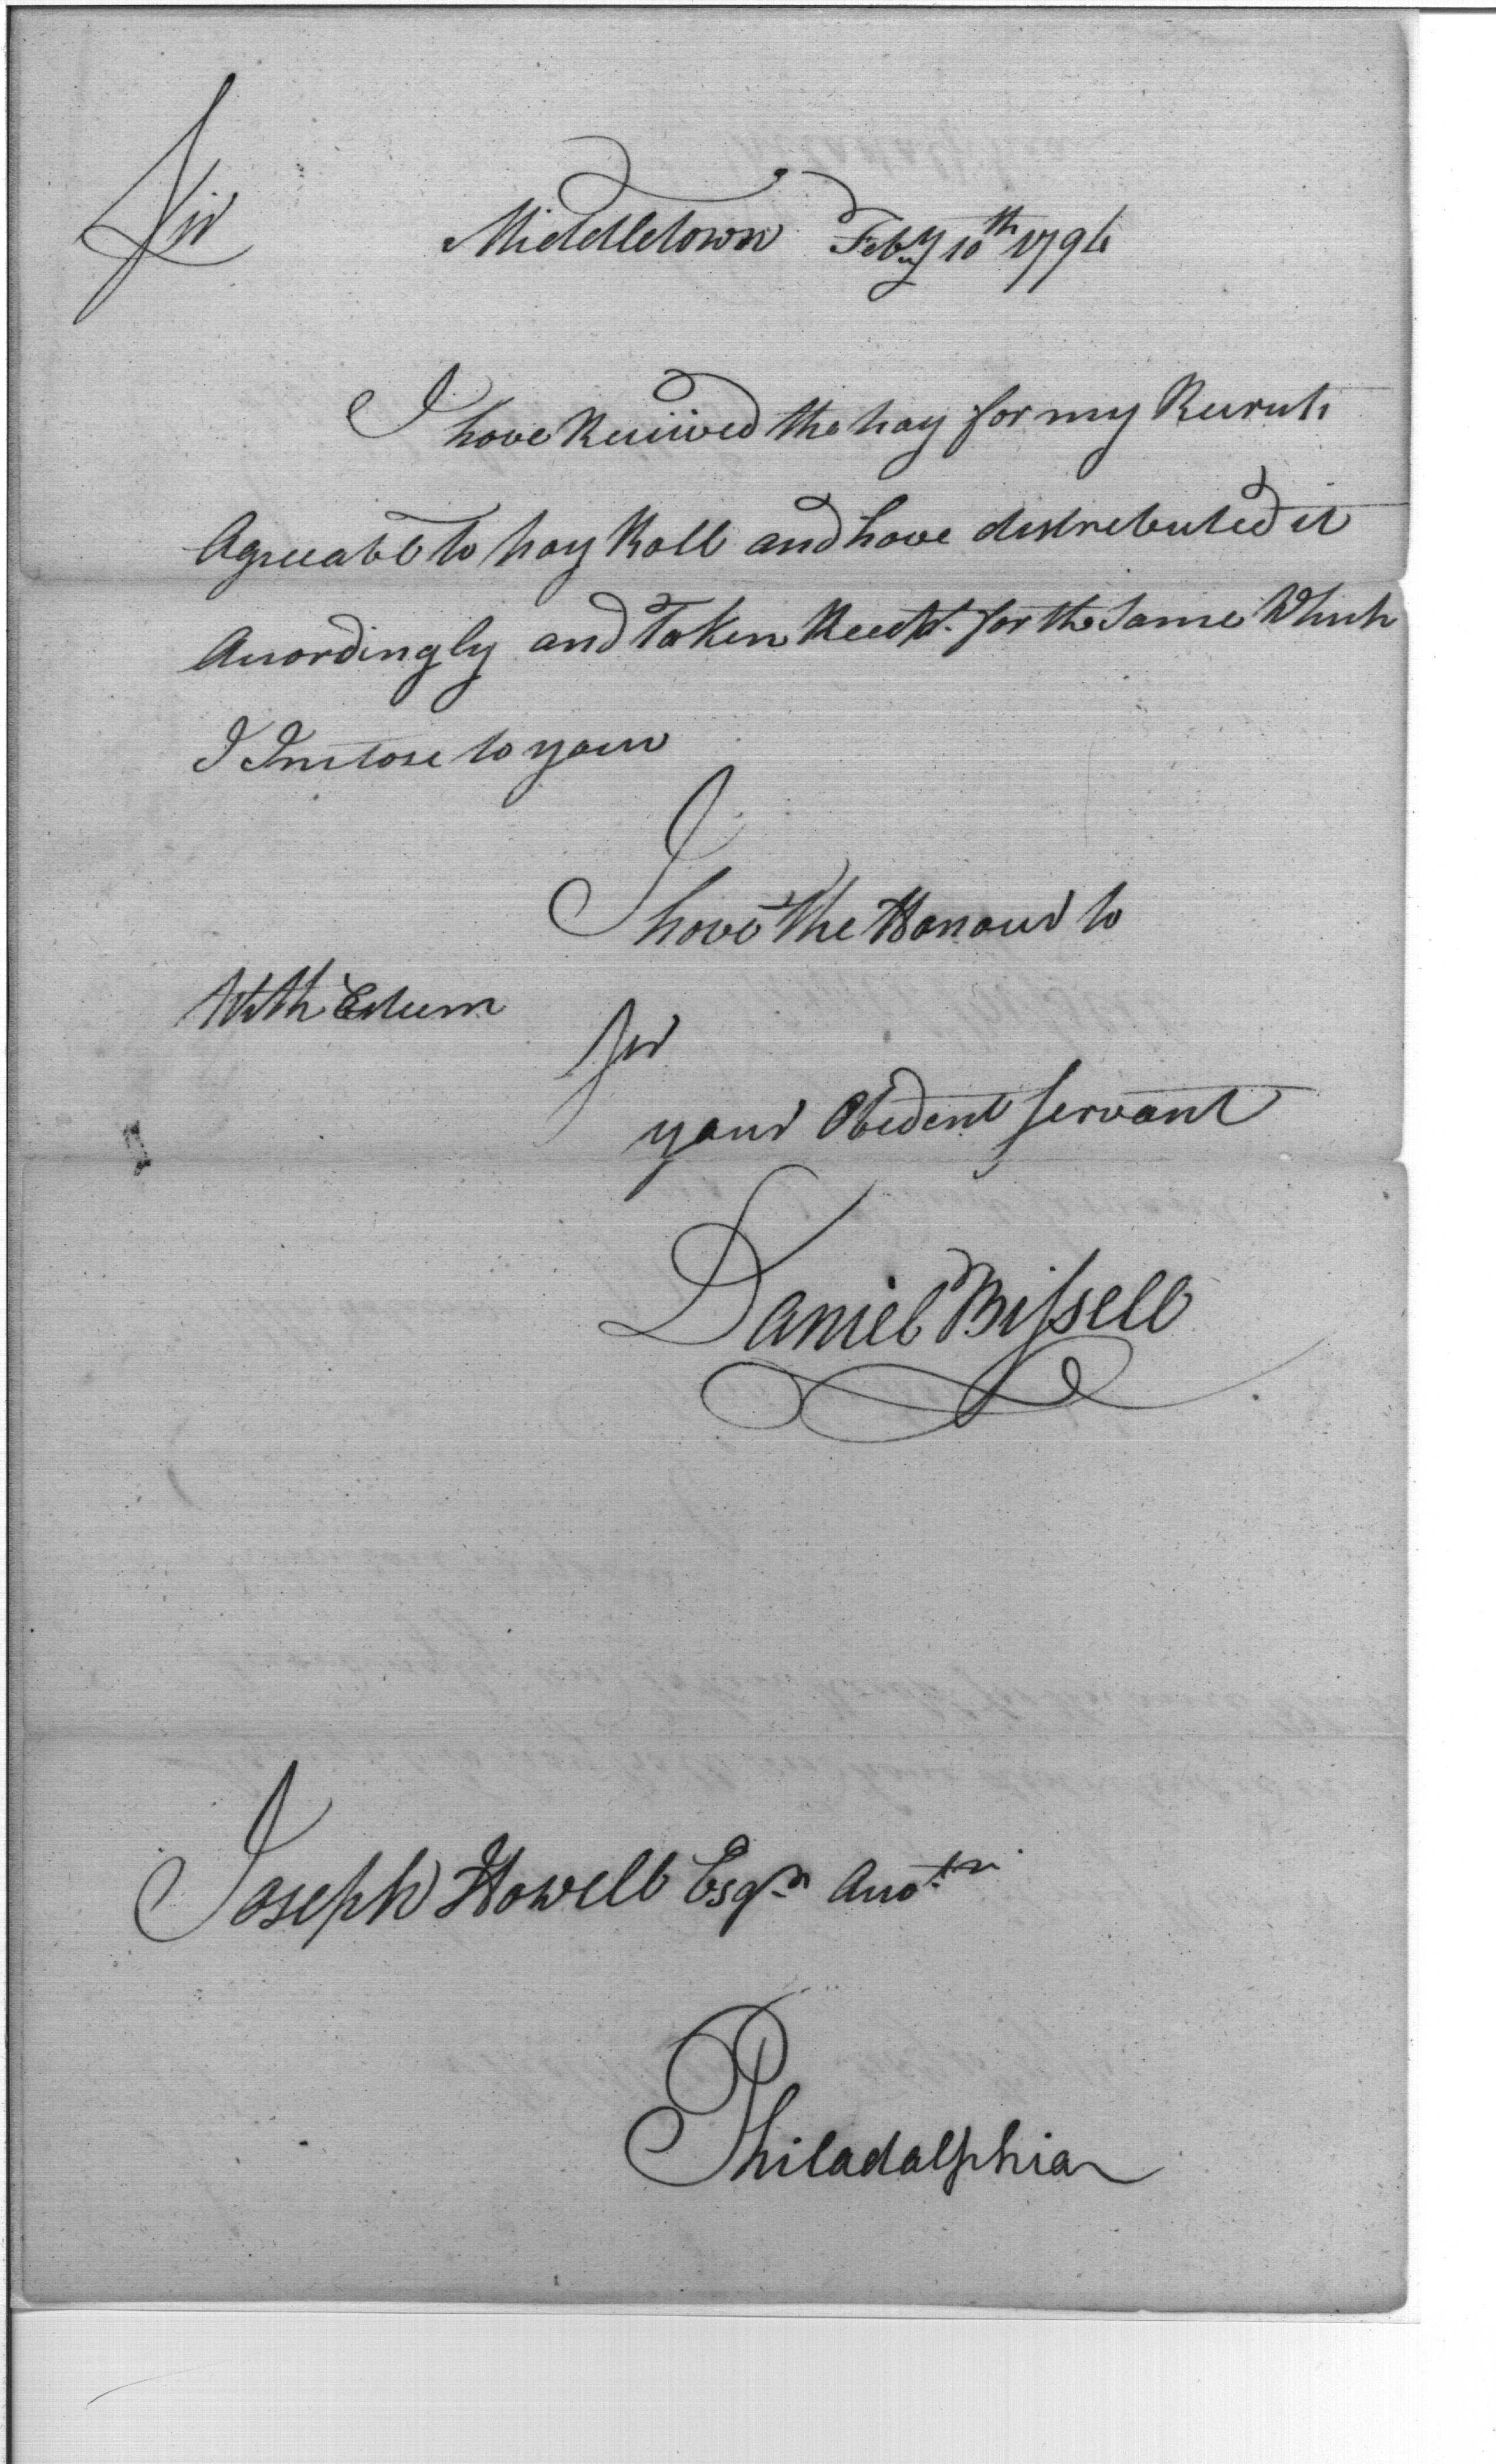 Sir
Middletown Feby 10th 1794
I have Received the pay for my Recruts
Agreeable to pay Roll and have distrebuted it
Accordingly and Taken Receipt for the Same Which
I Inclose to your
I have The Honour to
With Esteem
Sir
your Obedent Servant
Daniel Bissell
Joseph Howell Esqr Acct
Philadalphia